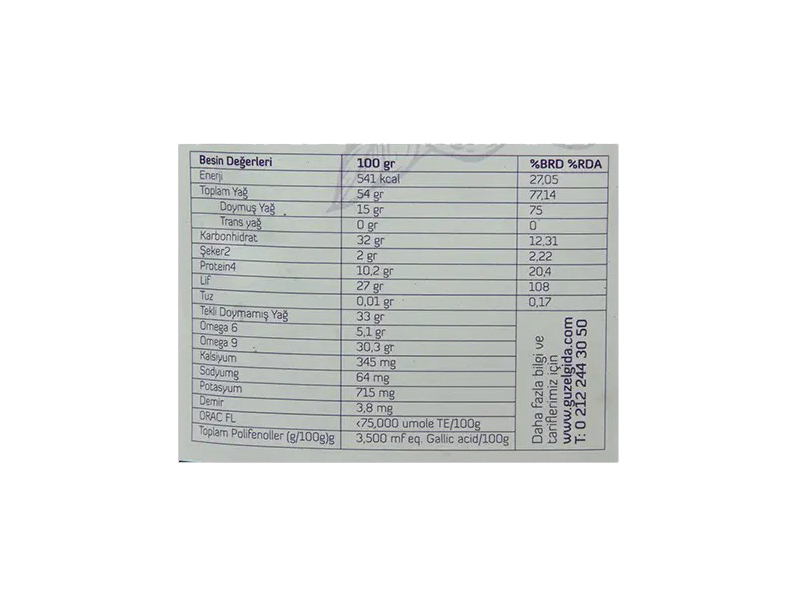 Besin Değerleri 100 gr %BRD %RDA
Enerji 541 kcal 27,05
Toplam Yağ 54 gr 77,14
Doymuş Yağ 15 gr 75
Trans yağ 0 gr 0
Karbonhidrat 32 gr 12,31
Şeker2 2 gr 2,22
Protein4 10,2 gr 20,4
Lif 27 gr 108
Tuz 0,01 gr 0,17
Tekli Doymamış Yağ 33 gr
Omega 6 5,1 gr
Omega 9 30,3 gr
Kalsiyum 345 mg
Sodyumg 64 mg
Potasyum 715 mg
Demir 3,8 mg
ORAC FL <75,000 umole TE/100g
Toplam Polifenoller (g/100g)g 3,500 mf eq. Gallic acid/100g
Daha fazla bilgi ve
tariflerimiz için
www.guzelgida.com
T: 0 212 244 30 50